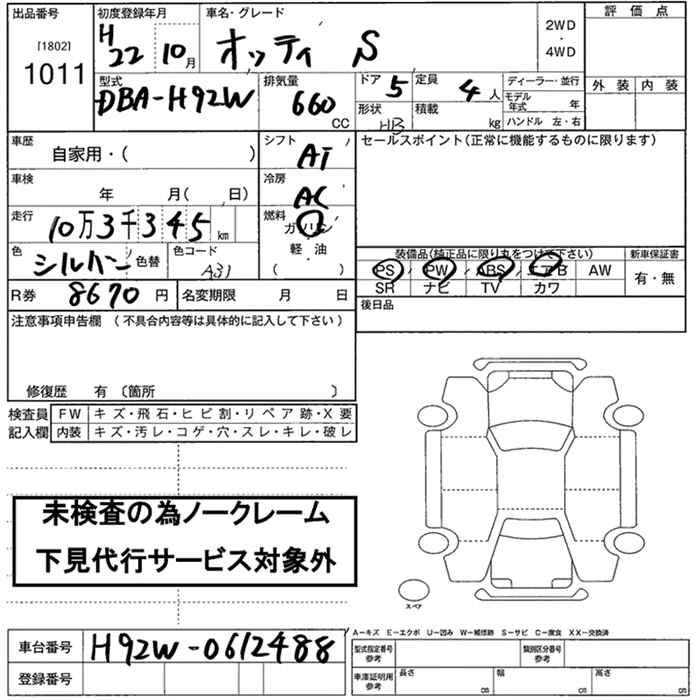 出品番号 初度登録年月 車名・グレード 評価点
[1802] H
1011 22 10月 オッティ S 2WD・4WD 外装 内装
型式 排気量 ドア 5 定員 4人 ディーラー・並行
DBA-H92W 660CC 形状 HB 積載 kg モデル年式 年
ハンドル 左・右
車歴 シフト AT セールスポイント(正常に機能するものに限ります)
自家用・( )
車検 冷房 AC
年 月( , 日)
走行 燃料
10万3千345km ガソリン
軽・油
( )
色 シルバー 色替 色コード A31
装備品(純正品に限り丸をつけて下さい) 新車保証書
PS PW ABS エアB AW 有・無
SR ナビ TV カワ
R券 8670円 名変期限 月 日 後日品
注意事項申告欄 (不具合内容等は具体的に記入して下さい)
修復歴 有 〔箇所 〕
検査員 FW キズ・飛石・ヒビ割・リペア跡・X要
記入欄 内装 キズ・汚レ・コゲ・穴・スレ・キレ・破レ
未検査の為ノークレーム
下見代行サービス対象外
スペア
A-キズ E-エクボ U-凹み W-補修跡 S-サビ C-腐食 XX-交換済
車台番号 H92W-0612488 型式指定番号 参考 類別区分番号 参考
登録番号 車庫証明用 参考 長さ cm 幅 cm 高さ cm